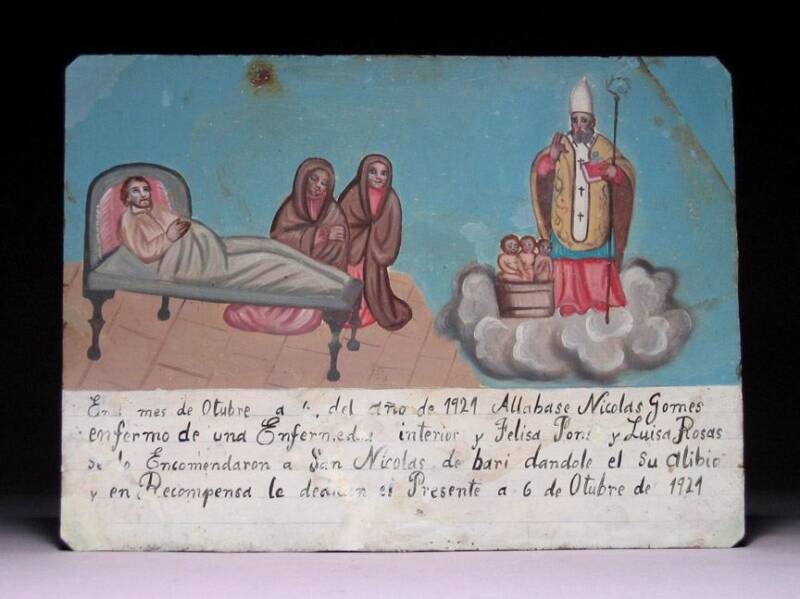 mes de Otubre a del año de 1921 Allabase Nicolas Gomes
enfermo de una interior y Felisa Pons y Luisa Rosas
Encomendaron a San Nicolas de bari dandole el su alibio
y en Recompensa le el Presente a 6 de Otubre de 1921